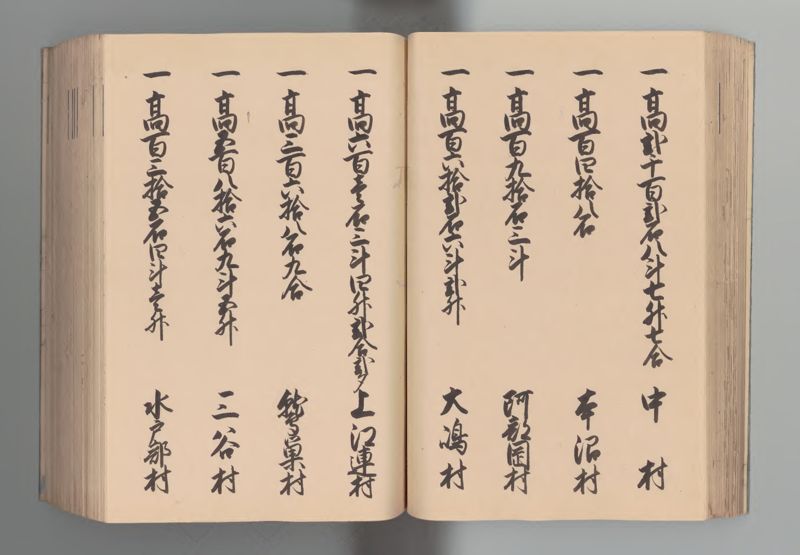 一 高弐千百弐石八斗七升七合 中村
一 高百四拾八石 本沼村
一 高百九拾石三斗 阿部岡村
一 高百六拾弐石六斗弐升 大嶋村
一 高六百壱石三斗四升弐合弐夕 上江連村
一 高三百六拾八石九合 鷲巣村
一 高五百八拾六石九斗五升 三谷村
一 高百三拾五石四斗壱升 水戸部村